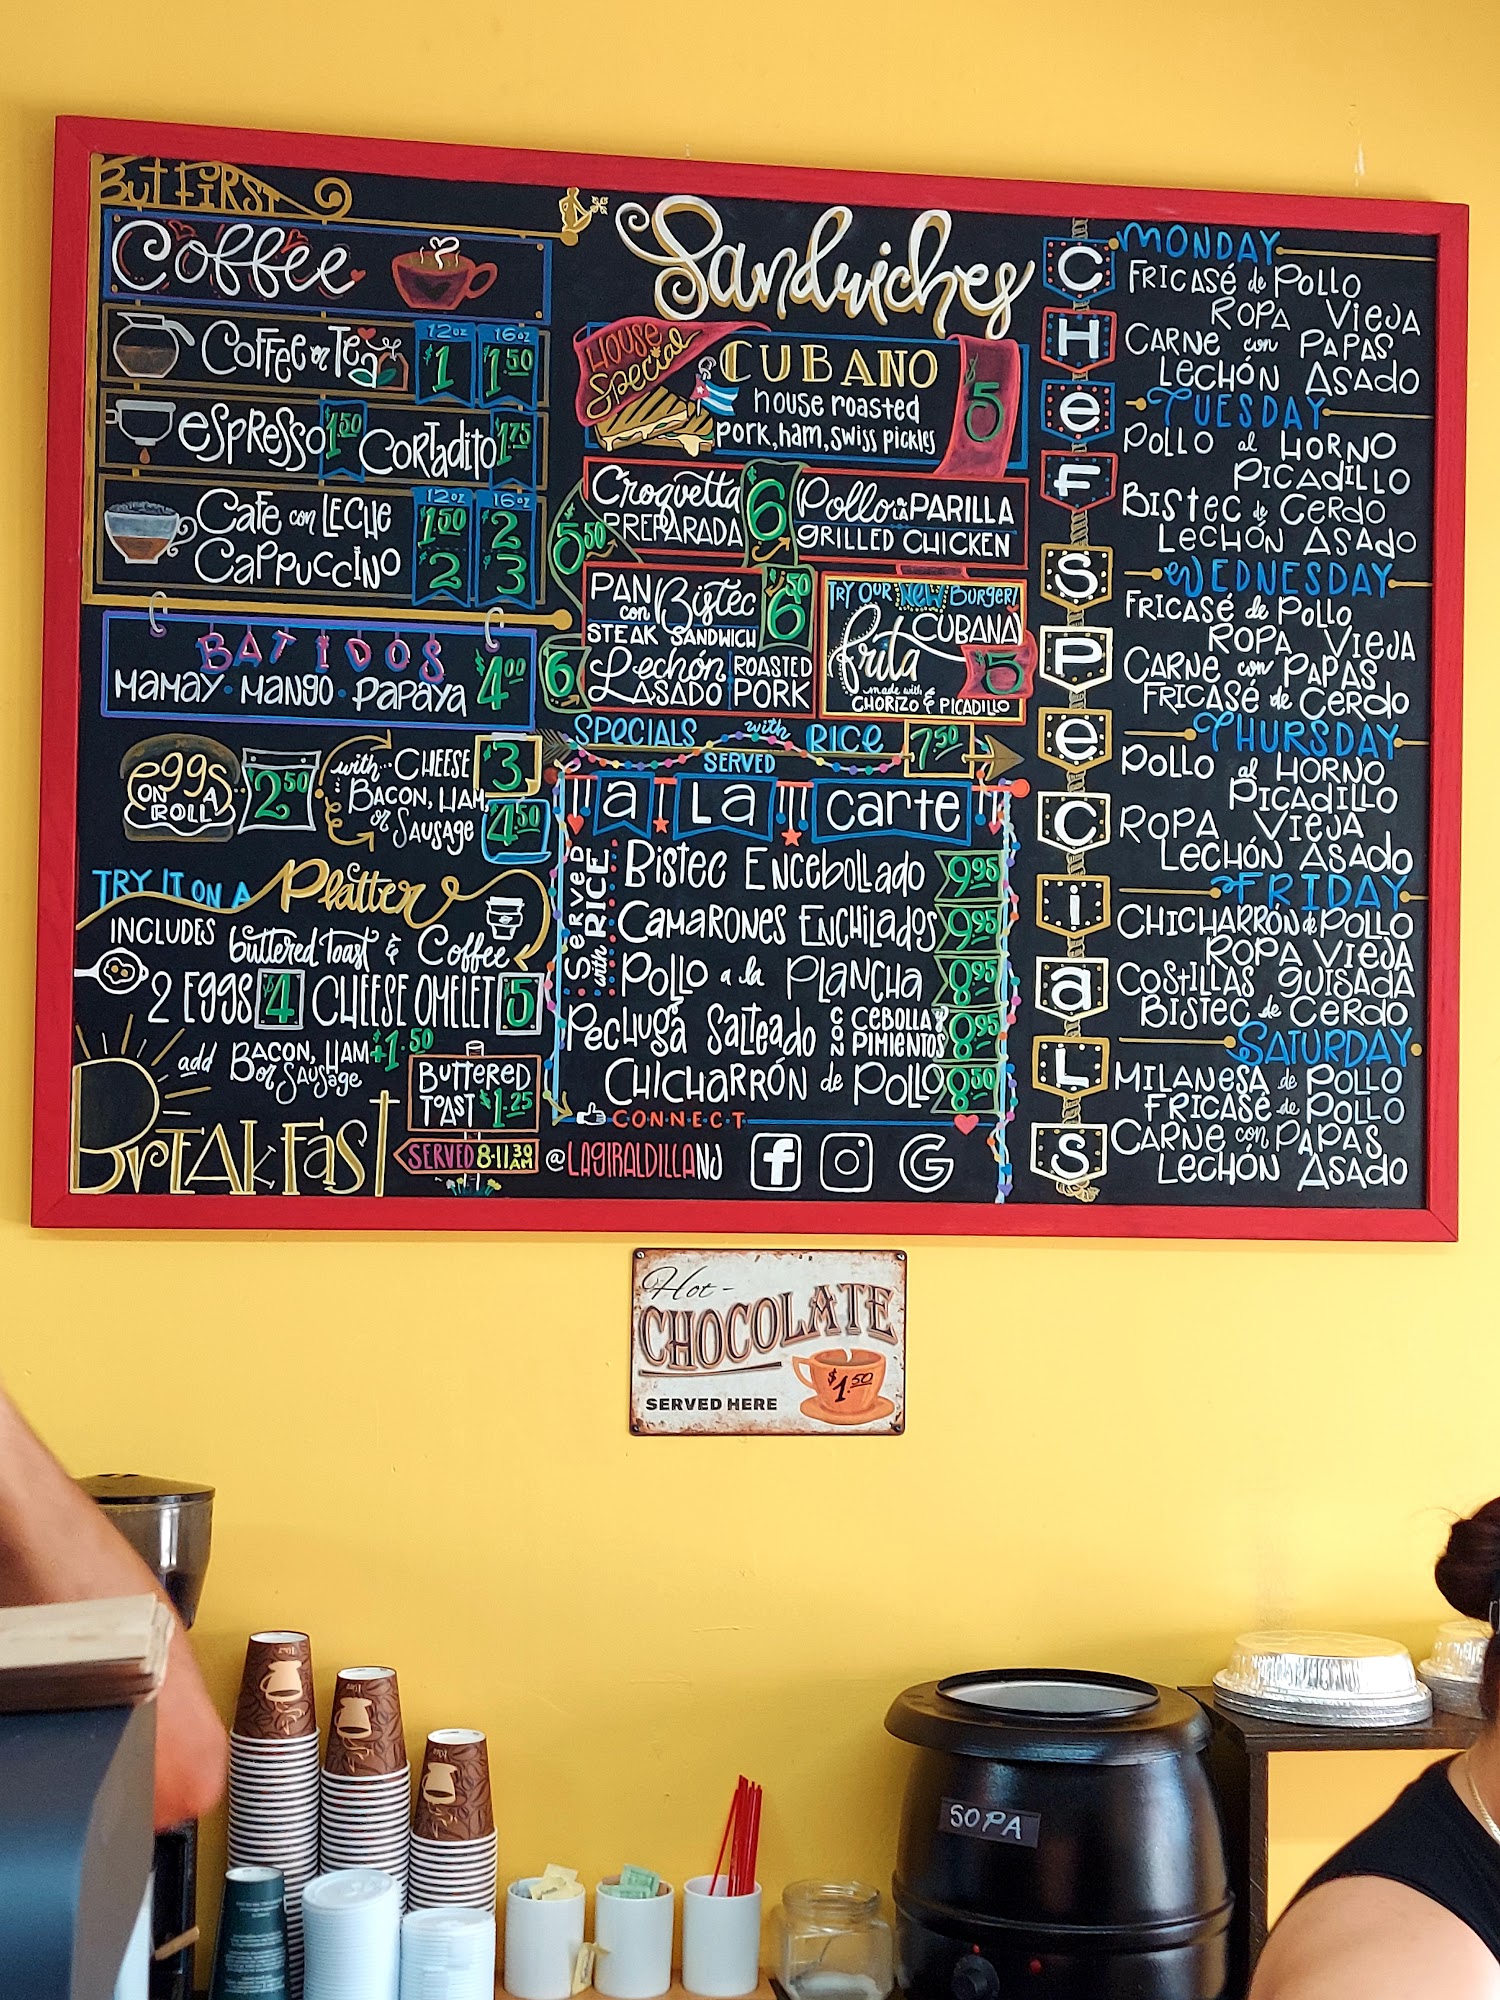 But First
Coffee
Coffee or Tea
12oz 16oz
$1 $1.50
espresso 1.50 Cortadito $1.75
12oz 16oz
Cafe con Leche $1.50 $2
Cappuccino 2 3
BATIDOS
Mamay • Mango • Papaya $4.00
eggs
ON A
ROLL
$2.50
with... CHEESE $3
Bacon, Ham,
or Sausage $4.50
TRY IT ON A Platter
INCLUDES buttered Toast & Coffee
2 Eggs $4 Cheese Omelet $5
add Bacon, Ham +1.50
or Sausage
Buttered
Toast $1.25
Breakfast
SERVED 8-11:30 AM
Sandwiches
House
Special
CUBANO
house roasted
pork, ham, swiss pickles
$5
Croquetta
PREPARADA
$5.50
Pollo a la PARILLA
GRILLED CHICKEN
$6
PAN con Bistec
STEAK SANDWICH
$6.50
Lechón
ASADO
ROASTED
PORK
$6
TRY OUR NEW BURGER!
frita CUBANA
$5
made with
CHORIZO & PICADILLO
SPECIALS with RICE 7.50
SERVED
a La carte
Served
with RICE
Bistec Encebollado 9.95
Camarones Enchilados 9.95
Pollo a la Plancha 8.95
Pechuga Salteado CON Cebolla y
Pimientos 8.95
Chicharrón de Pollo 8.50
CONNECT
@LAGIRALDILLANJ
f G
CHefSPeCiaLS
MONDAY
Fricasé de Pollo
Ropa Vieja
Carne con Papas
Lechón Asado
TUESDAY
Pollo al Horno
Picadillo
Bistec de Cerdo
Lechón Asado
WEDNESDAY
Fricasé de Pollo
Ropa Vieja
Carne con Papas
Fricasé de Cerdo
THURSDAY
Pollo al Horno
Picadillo
Ropa Vieja
Lechón Asado
FRIDAY
Chicharrón de Pollo
Ropa Vieja
Costillas Guisada
Bistec de Cerdo
SATURDAY
Milanesa de Pollo
Fricasé de Pollo
Carne con Papas
Lechón Asado
Hot-
CHOCOLATE
$1.50
SERVED HERE
SOPA